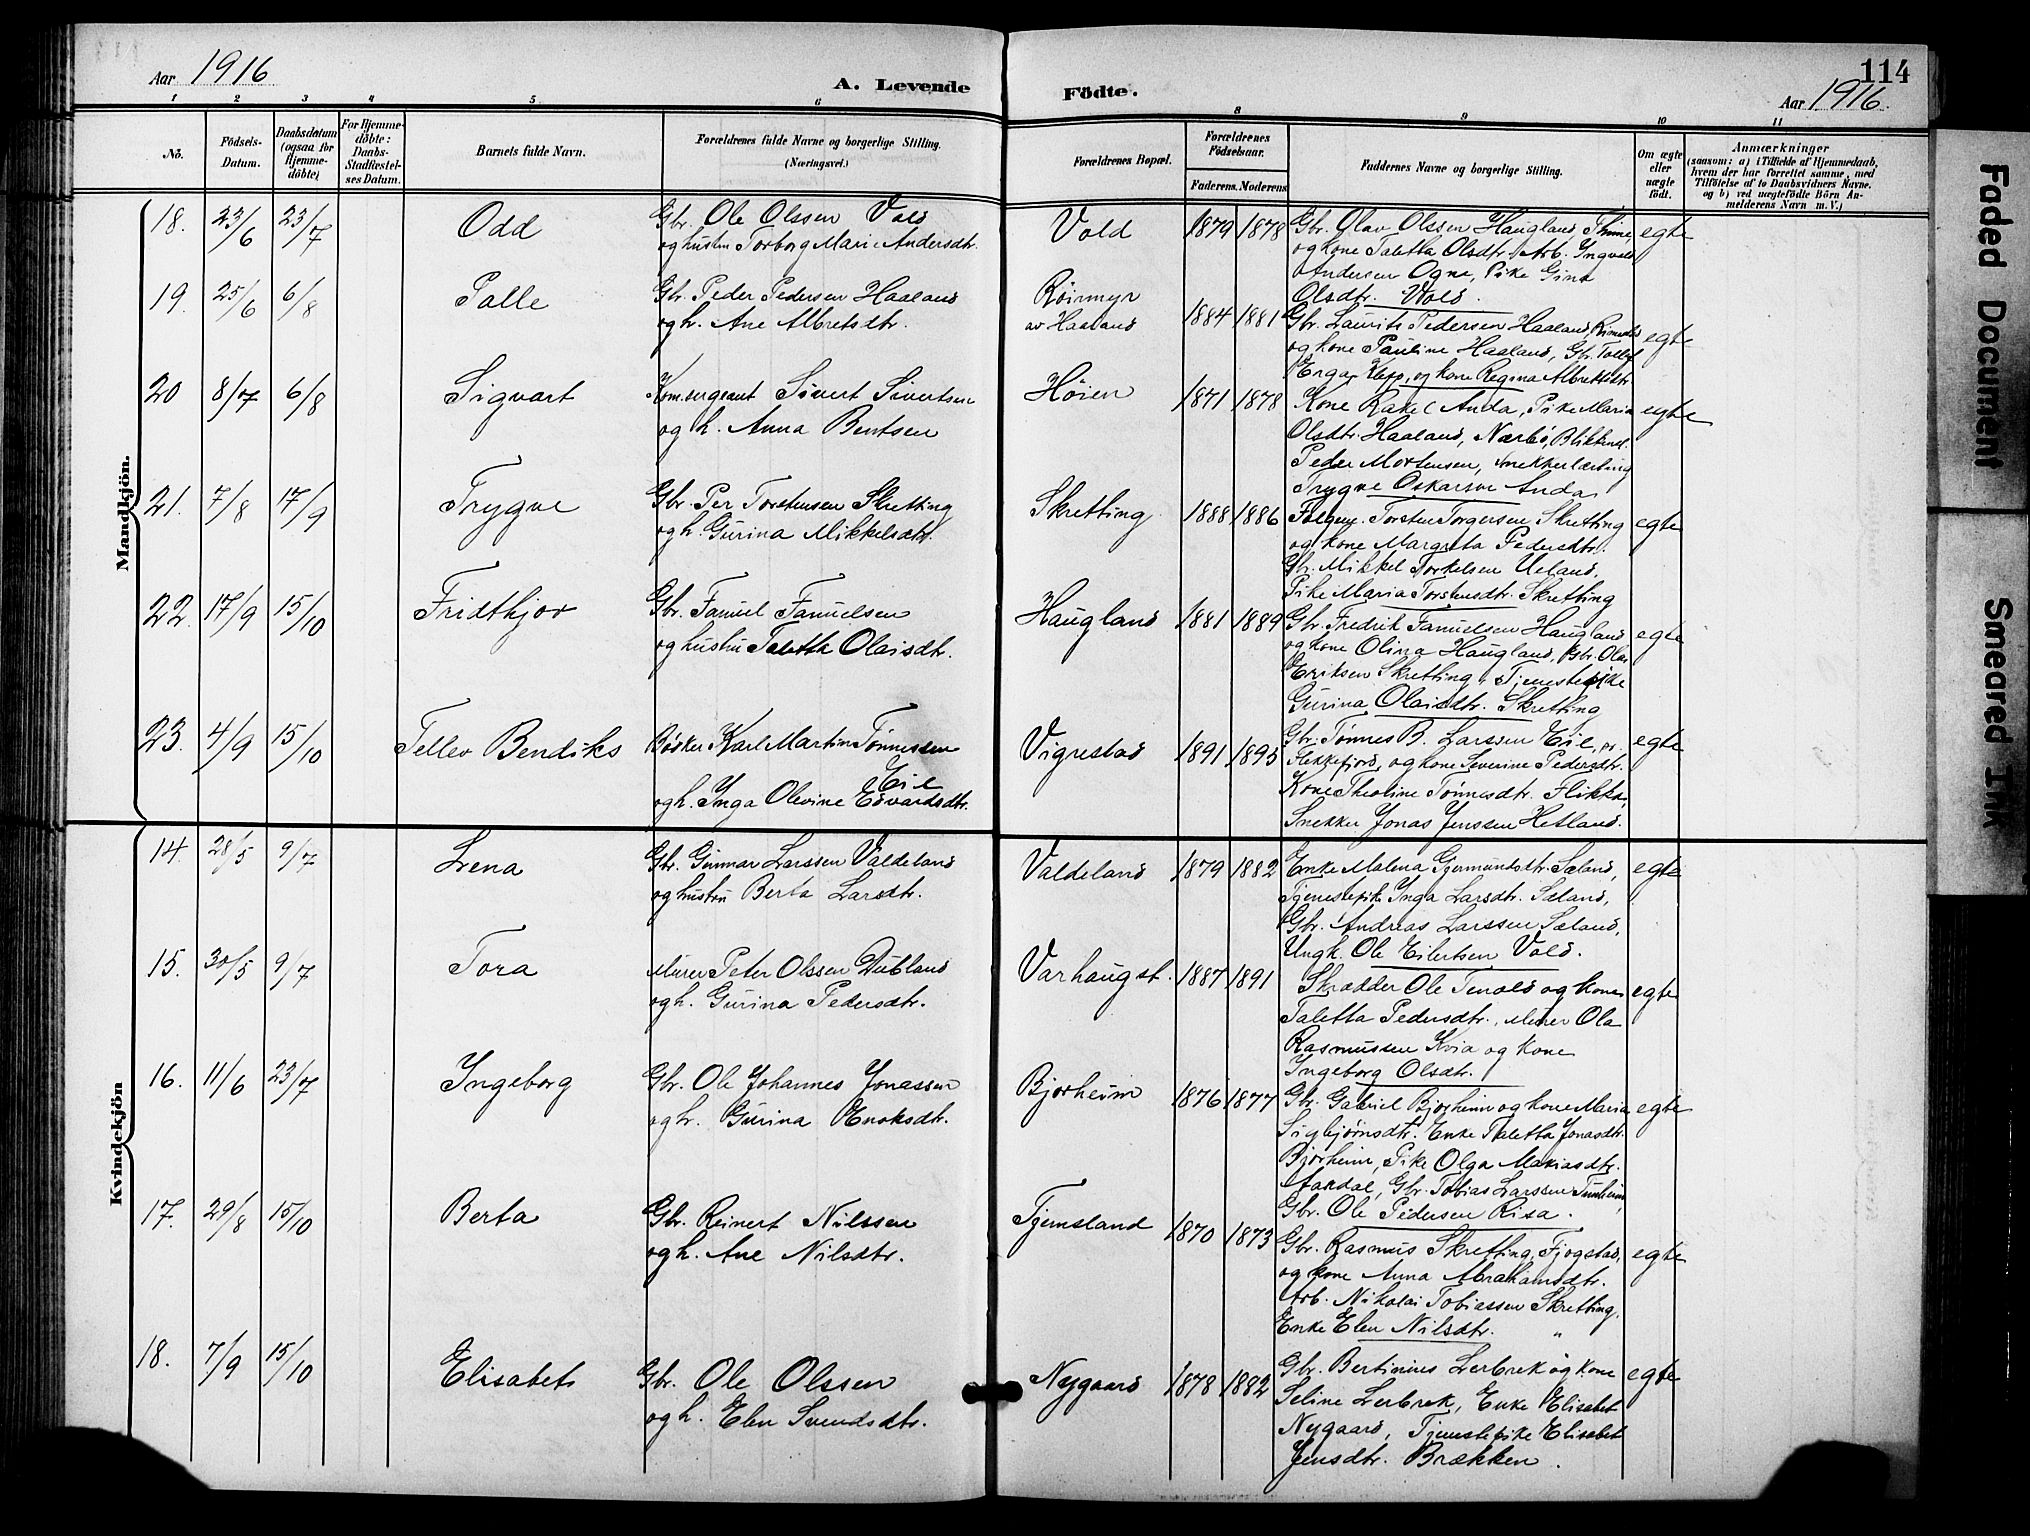 Aar 1916
A. Levende
Födte.
114
Aar 1916.
1 2 3 4 5 6 8 9 10 11
No.
Födsels-Datum.
Daabsdatum (ogsaa for Hjemmedöbte)
For Hjemmedöbte: Daabs-Stadfæstelses Datum.
Barnets fulde Navn.
Forældrenes fulde Navne og borgerlige Stilling. (Næringsvei.)
Forældrenes Bopæl.
Forældrenes Födselsaar.
Faderens. Moderens
Faddernes Navne og borgerlige Stilling.
Om ægte eller uægte födt.
Anmærkninger
(saasom: a) i Tilfælde af Hjemmedaab, hvem der har forrettet samme, med Tilföielse af to Daabsvidners Navne, og b) ved uægtefödte Börn Anmelderens Navn m. V.)
Mandkjön.
18. 23/6 23/7 Odd
Gbr. Ole Olssen Vold
og hustru Torborg Marie Andersdtr.
Vold 1879 1878
Gbr. Olav Olssen Haugland, Thime,
og kone Taletta Olsdtr. Arb. Ingvald
Andersen Ogne, Pike Gina
Olsdtr. Vold.
egte
19. 25/6 6/8 Palle
Gbr. Peder Pedersen Haaland
og h. Ane Albretsdtr.
Röirmyr
av Haaland
1884 1881
Gbr. Laurits Pedersen Haaland
og kone Pauline Haaland, Gbr. Tollef
Erga, Klepp, og kone Regina Albretsdtr
egte
20 8/7 6/8 Sigvart
Kom.sergeant Sivert Sivertsen
og h. Anna Bentsen
Höien 1871 1878
Kone Rakel Anda, Pike Maria
Olsdtr. Haaland, Nærbö, Blikkensl.
Peder Mortensen, Snekkerlærling
Trygve Oskarson Anda
egte
21. 7/8 17/9 Trygve
Gbr. Per Torstensen Skretting
og h. Gurina Mikkelsdtr.
Skretting 1888 1886
Folgem. Torsten Torgersen Skretting
og kone Margreta Pedersdtr.
Gbr. Mikkel Torkelsen Ueland.
Pike Maria Torstensdtr. Skretting
egte
22. 17/9 15/10 Fridthjov
Gbr. Famuel Famuelsen
og hustru Taletta Olaisdtr.
Haugland 1881 1889
Gbr. Fredrik Famuelsen Haugland
og kone Olina Haugland, Gbr. Olai
Eriksen Skretting, Tjenestepike
Gurina Olaisdtr. Skretting
egte
23. 4/9 15/10 Tellev Bendiks
Bödker Karl Martin Tönnessen
Eie
og h. Inga Olevine Edvardsdtr.
Vigrestad 1891 1895
Gbr. Tönnes B. Larssen Eie, pr.
Flekkefjord, og kone Severine Pedersdtr.
Kone Theoline Tönnesdtr. Flikka,
Snekker Jonas Jenssen Hetland.
egte
Kvindekjön
14. 28/5 9/7 Lena
Gbr. Gunnar Larssen Valdeland
og hustru Berta Larsdtr.
Valdeland 1879 1882
Enke Malena Gjermundsdtr. Sæland,
Tjenestepik Inga Larsdtr. Sæland,
Gbr. Andreas Larssen Sæland,
Ungk. Ole Eilertsen Vold.
egte
15. 30/5 9/7 Tora
Murer Peter Olssen Dubland
og h. Gurina Pedersdtr.
Varhaugst. 1887 1891
Skrædder Ole Tenold og kone
Taletta Pedersdtr., Murer Ola
Rasmussen Kvia og kone
Ingeborg Olsdtr.
egte
16. 11/6 23/7 Ingeborg
Gbr. Ole Johannes Jonassen
og h. Gurina Enoksdtr.
Bjorheim 1876 1877
Gbr. Gabriel Bjorheim og kone Maria
Sigbjörnsdtr. Enke Taletta Jonasdtr.
Bjorheim, Pike Olga Makiasdtr.
Aardal, Gbr. Tobias Larssen Tunheim,
Gbr. Ole Pedersen Risa.
egte
17. 29/8 15/10 Berta
Gbr. Reinert Nilssen
og h. Ane Nilsdtr.
Tjemsland 1870 1873
Gbr. Rasmus Skretting, Fjogstad,
og kone Anna Abrahamsdtr.
Arb. Nikolai Tobiassen Skretting,
Enke Elen Nilsdtr. "
egte
18. 7/9 15/10 Elisabet
Gbr. Ole Olssen
og h. Elen Svendsdtr.
Nygaard 1878 1882
Gbr. Bertinius Lerbrek og kone
Seline Lerbrek, Enke Elisabet
Nygaard, Tjenestepike Elisabet
Jensdtr. Brækken.
egte
Faded Document
Smeared Ink